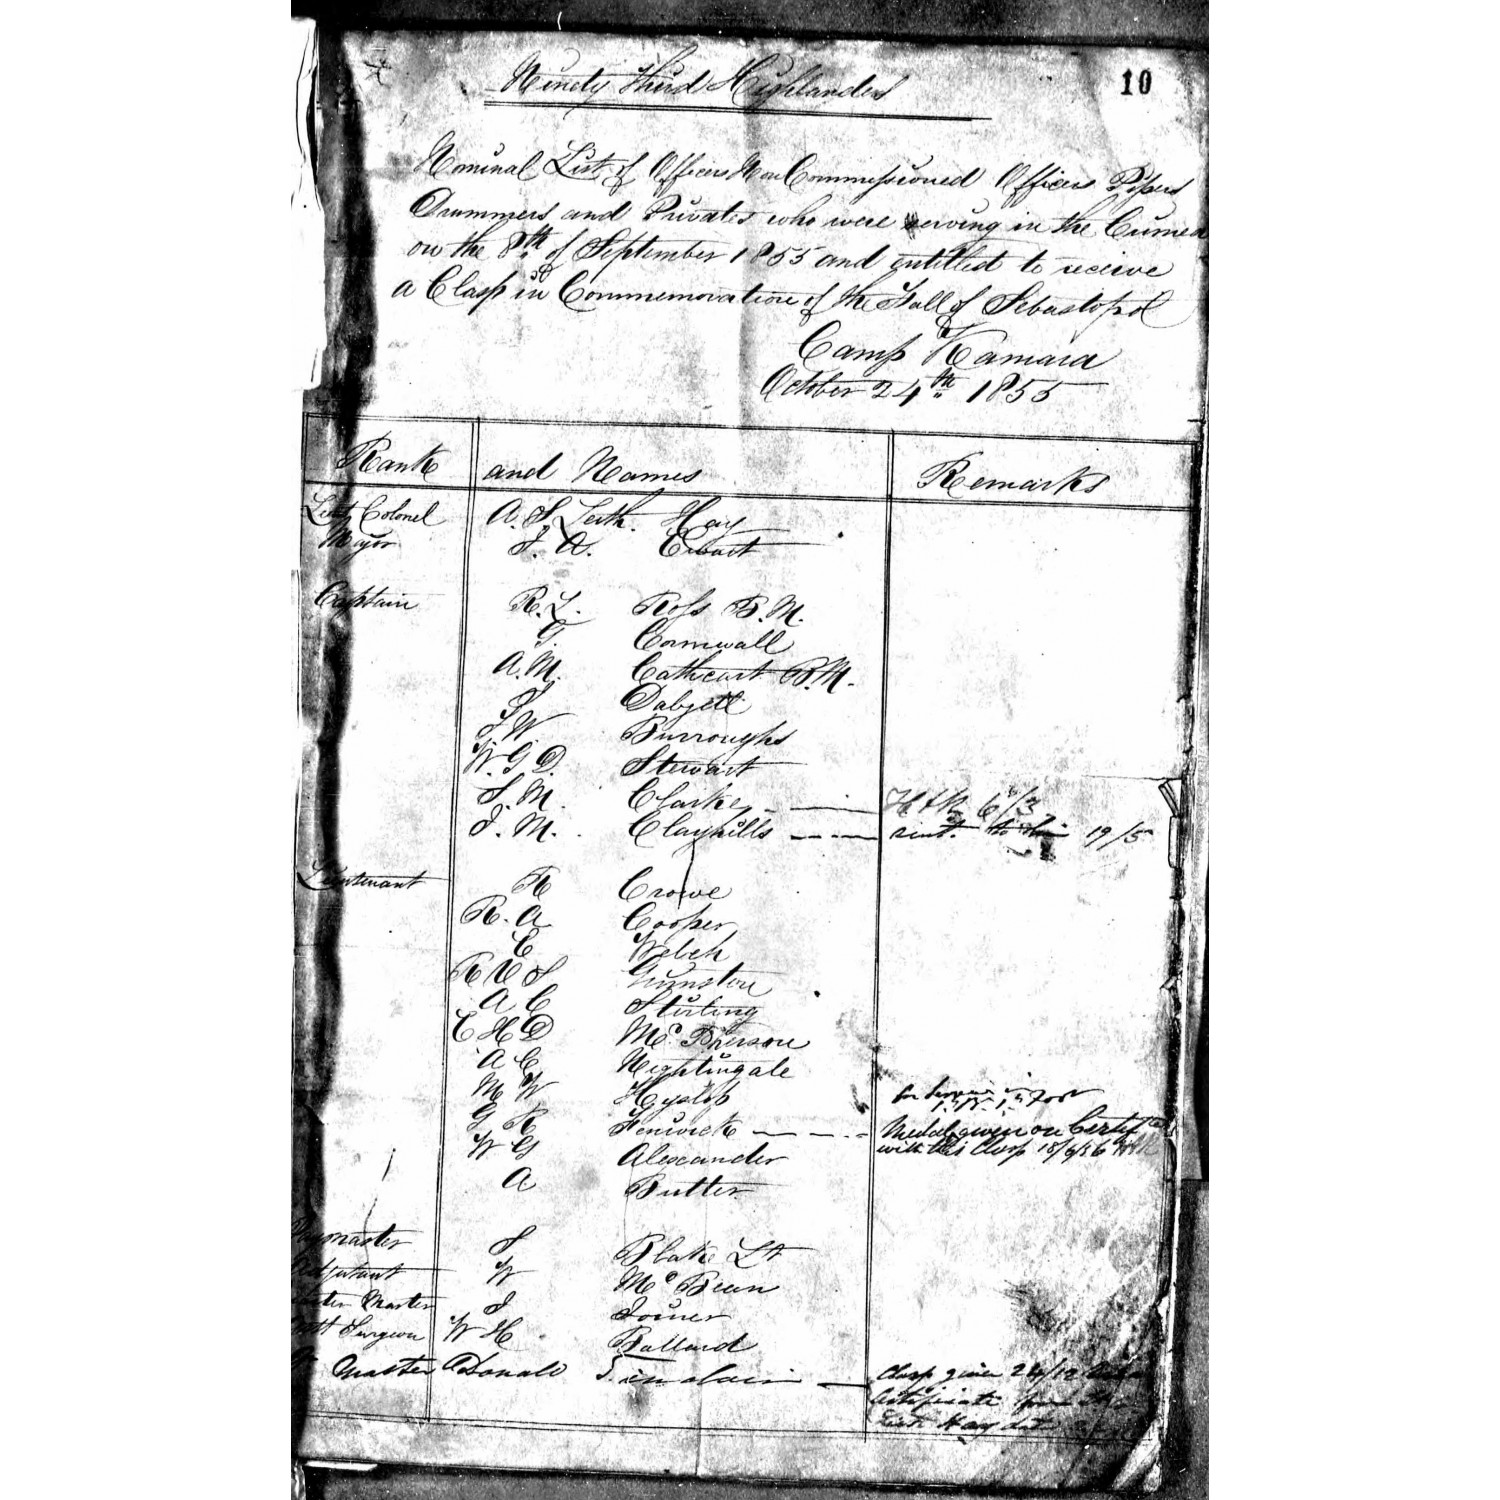 10
Ninety third Highlanders
Nominal List of Officers Non Commissioned Officers Pipers
Drummers and Privates who were serving in the Crimea
on the 8th of September 1855 and entitled to receive
a Clasp in Commemoration of the Fall of Sebastopol
Camp Kamara
October 24th 1855
Rank and Names Remarks
Lieut Colonel A. S. Leith Hay
Major J. A. Ewart
Captain R. L. Ross B.M.
G. Cornwall
A. M. Cathcart B.M.
J Dalzell
F. W. Burroughs
W. G. D. Stewart
S. M. Clarke 6/3
J. M. Clayhills sent to him 19/5
Lieutenant R Crowe
R. A Cooper
E Welch
R V S Grimston
A C Stirling
E H D Mc Pherson
A C Nightingale
M W Hyslop
G R Fenwick Medal given on Certifte
with this Clasp 18/6/56
W G Alexander
A Butter
Paymaster J Blake Lt
Adjutant W Mc Bean
Quarter Master J Joiner
Asst Surgeon W H Ballard
Qr Master Donald Sinclair Clasp given 24/12
Certificate from
Leith Hay